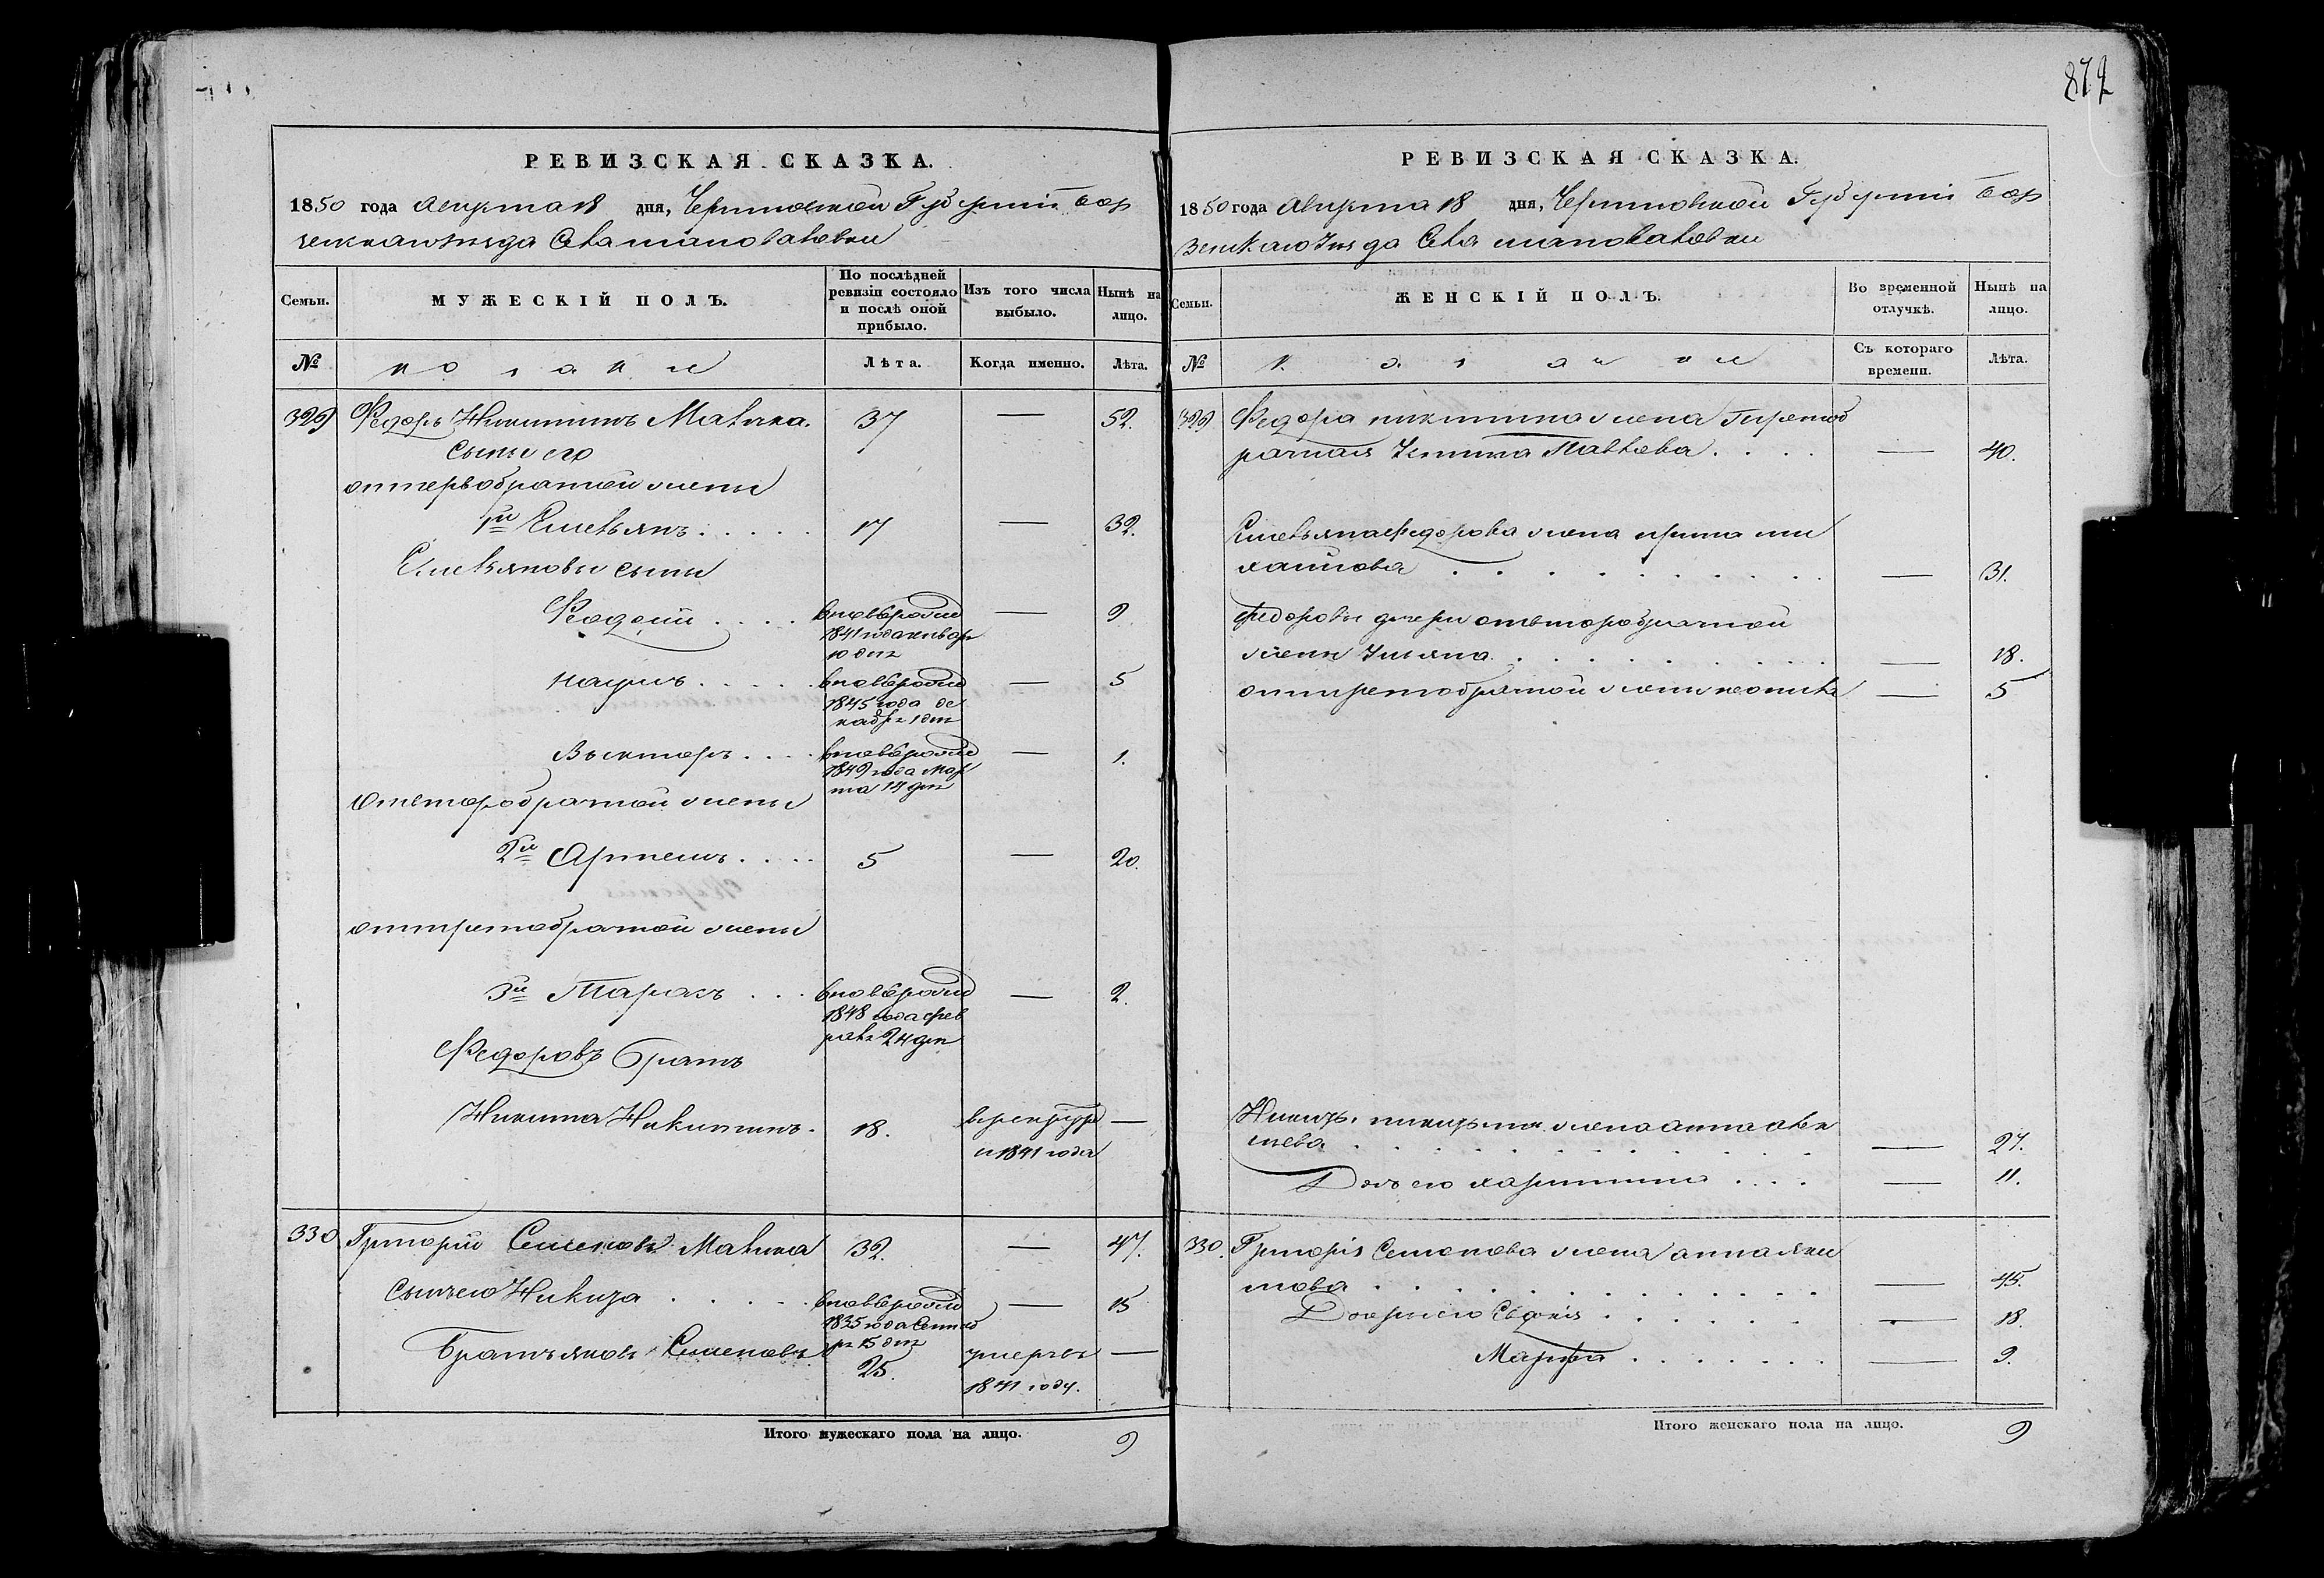 872
РЕВИЗСКАЯ СКАЗКА.
1850 года Августа 18 дня, Черниговской Губернiи Бор
зенскаго уезда Села
МУЖЕСКIЙ ПОЛЪ.
Семьи.
По послѣдней ревизiи состояло и послѣ оной прибыло.
Изъ того числа выбыло.
Нынѣ на лицо.
№
козаки
Лѣта.
Когда именно.
Лѣта.
329 Федоръ Никитинъ 37 — 52.
Сыны его
отпервобрачной жены
1й Емельянъ 17 — 32.
Емельяновы сыны
Фодей вновьрожд — 9
1841 года январ
10 дня
Наумъ вновьрожд — 5
1845 года де
кабря 1 дня
Выкторъ вновьрожд — 1.
1849 года мар
та 14 дня
отвторобрачной жены
2й Артемъ 5 — 20.
оттретобрачной жены
3й Тарасъ вновьрожд — 2.
1848 года фев
раля 24 дня
Федоровъ братъ
Никита Никитинъ. 18. врекрут —
и 1841 года
330 Григорiй Семеновъ 32. — 47.
Сынъ его Никита вновьрожд — 15
1835 года Сентяб
ря 15 дня
Братъ Яковъ Семеновъ 25. умеръ въ —
1841 году.
Итого мужескаго пола на лицо. 9
РЕВИЗСКАЯ СКАЗКА.
1850 года Августа 18 дня, Черниговской Губернiи Бор
зенскаго уезда Села
Семьи.
ЖЕНСКIЙ ПОЛЪ.
Во временной отлучкѣ.
Нынѣ на лицо.
№
козачки
Съ котораго времени.
Лѣта.
329 Федора Никитина жена третоб
рачная Устина Павлова — 40.
Емельяна Федорова жена Ирина Ми
хайлова — 31.
Федоровы дочери отвторобрачной
жены Ульяна — 18.
оттретобрачной жены — 5
жена Анна
— 27.
Дочь его Харитина — 11.
330. Григорiя Семенова жена Анна Яки
мова — 45.
Дочери его Евдокiя — 18.
Марфа — 9.
Итого женскаго пола на лицо. 9